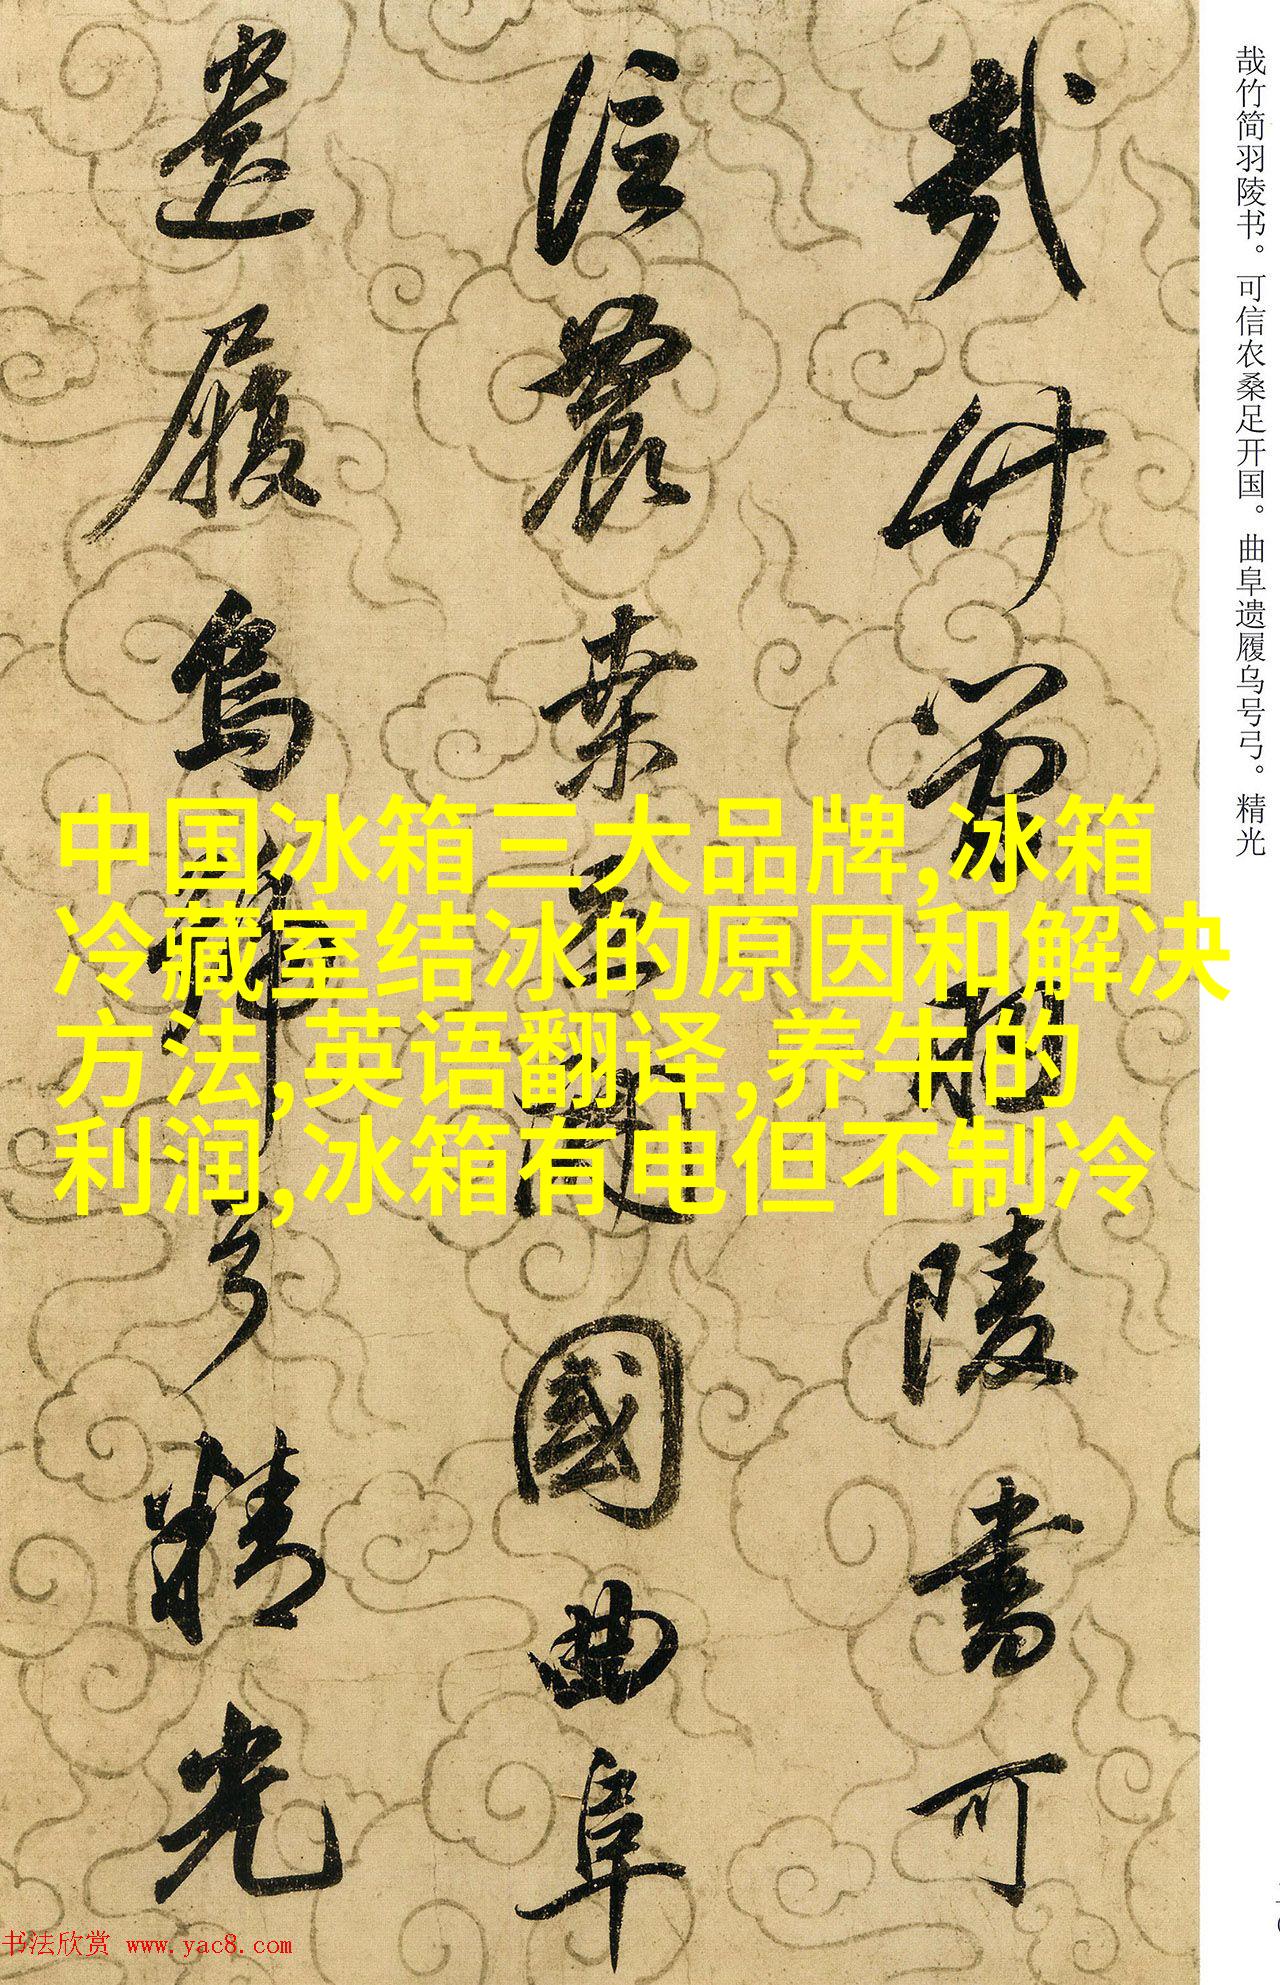 哉竹简羽陵书。可信农桑足开国。曲阜遗履乌号弓。精光
哉竹簡羽陵書可
信農桑足開國曲阜
遺履烏號弓精光
中国冰箱三大品牌,冰箱
冷藏室结冰的原因和解决
方法,英语翻译,养牛的
利润,冰箱有电但不制冷
书法欣赏 www.yac8.com